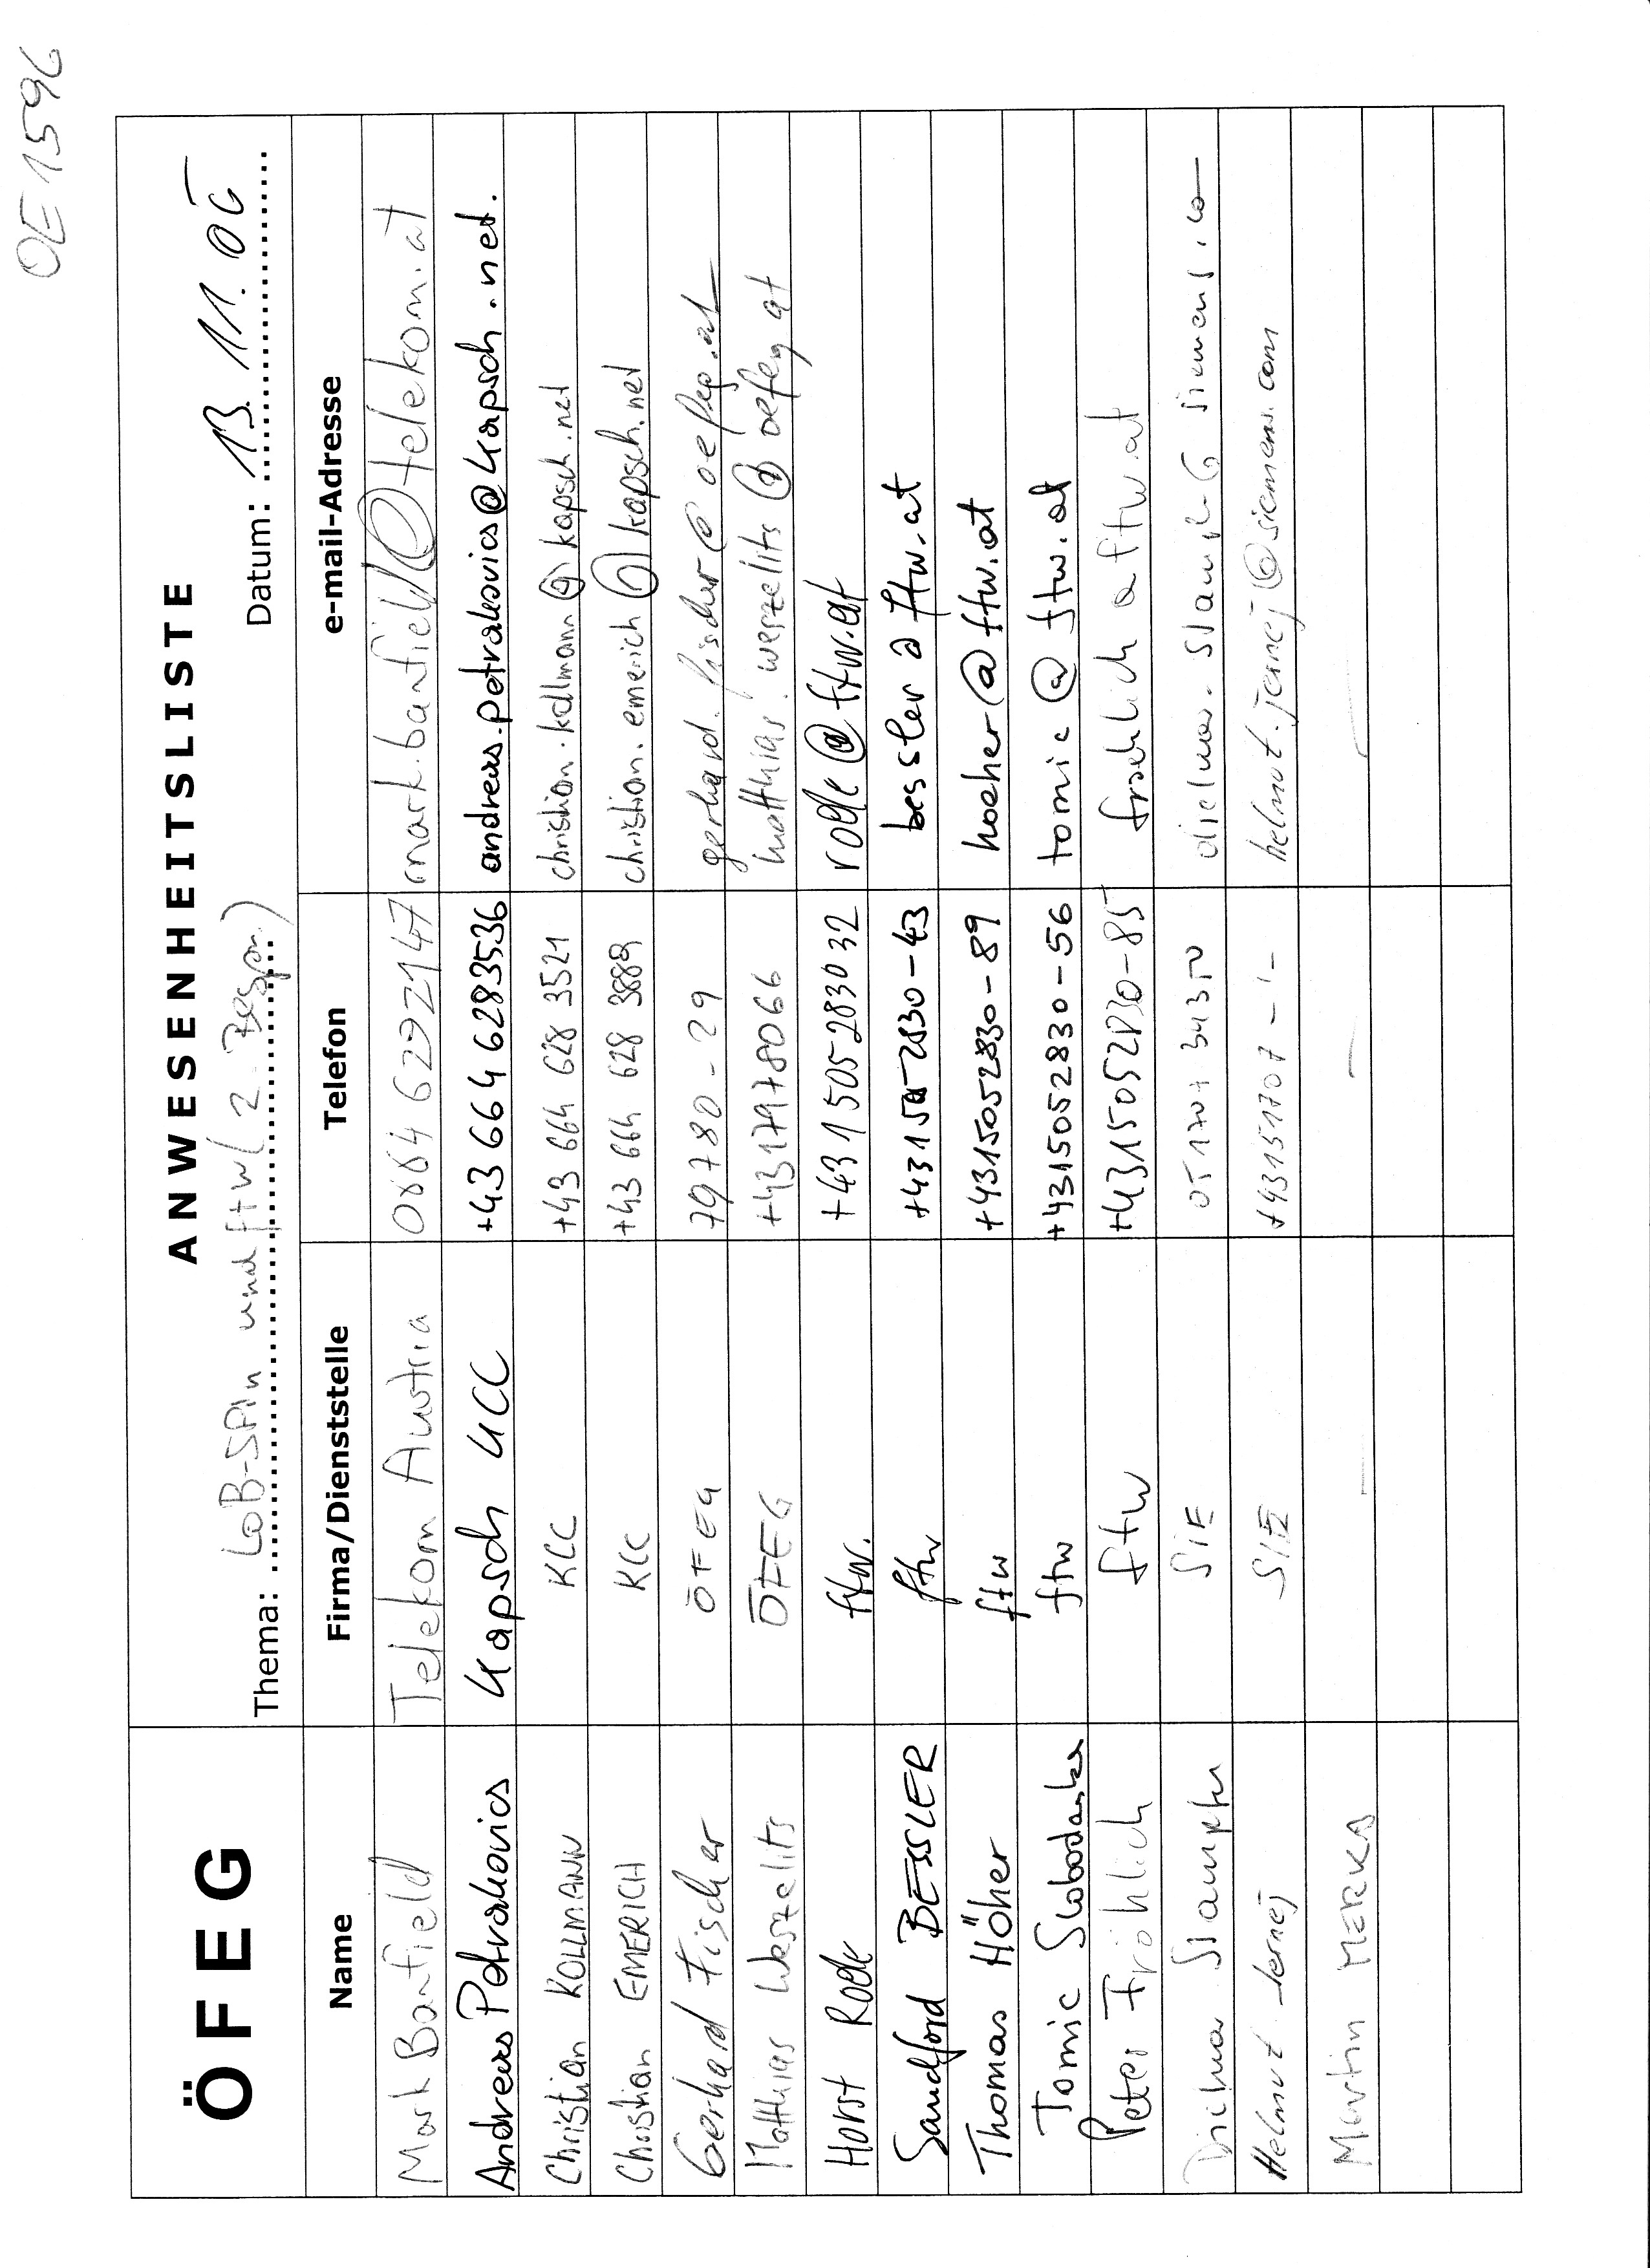 OE 1596
ÖFEG
ANWESENHEITSLISTE
Thema: LoB-SPIn und ftw (2. Bespr.) Datum: 13. 11. 06
Name Firma/Dienststelle Telefon e-mail-Adresse
Mark Banfield Telekom Austria 0664 6292147 mark.banfield@telekom.at
Andreas Petrakovics Kapsch KCC +43 664 6283536 andreas.petrakovics@kapsch.net.
Christian KOLLMANN KCC +43 664 628 3521 christian.kollmann@kapsch.net
Christian EMERICH KCC +43 664 628 3889 christian.emerich@kapsch.net
Gerhard Fischer ÖFEG 79780-29 gerhard.fischer@oefeg.at
Matthias Weszelits ÖFEG +4317978066 matthias.weszelits@oefeg.at
Horst Rode ftw. +431505283032 rode@ftw.at
Sandford BESSLER ftw +431505 2830-43 bessler@ftw.at
Thomas Höher ftw +4315052830-89 hoeher@ftw.at
Tomic Slobodanka ftw +4315052830-56 tomic@ftw.at
Peter Fröhlich ftw +4315052830-85 froehlich@ftw.at
Dietmar SIE
Helmut Jernej SIE +43151707 -"- helmut.jernej@siemens.com
Martin MERKA — — —